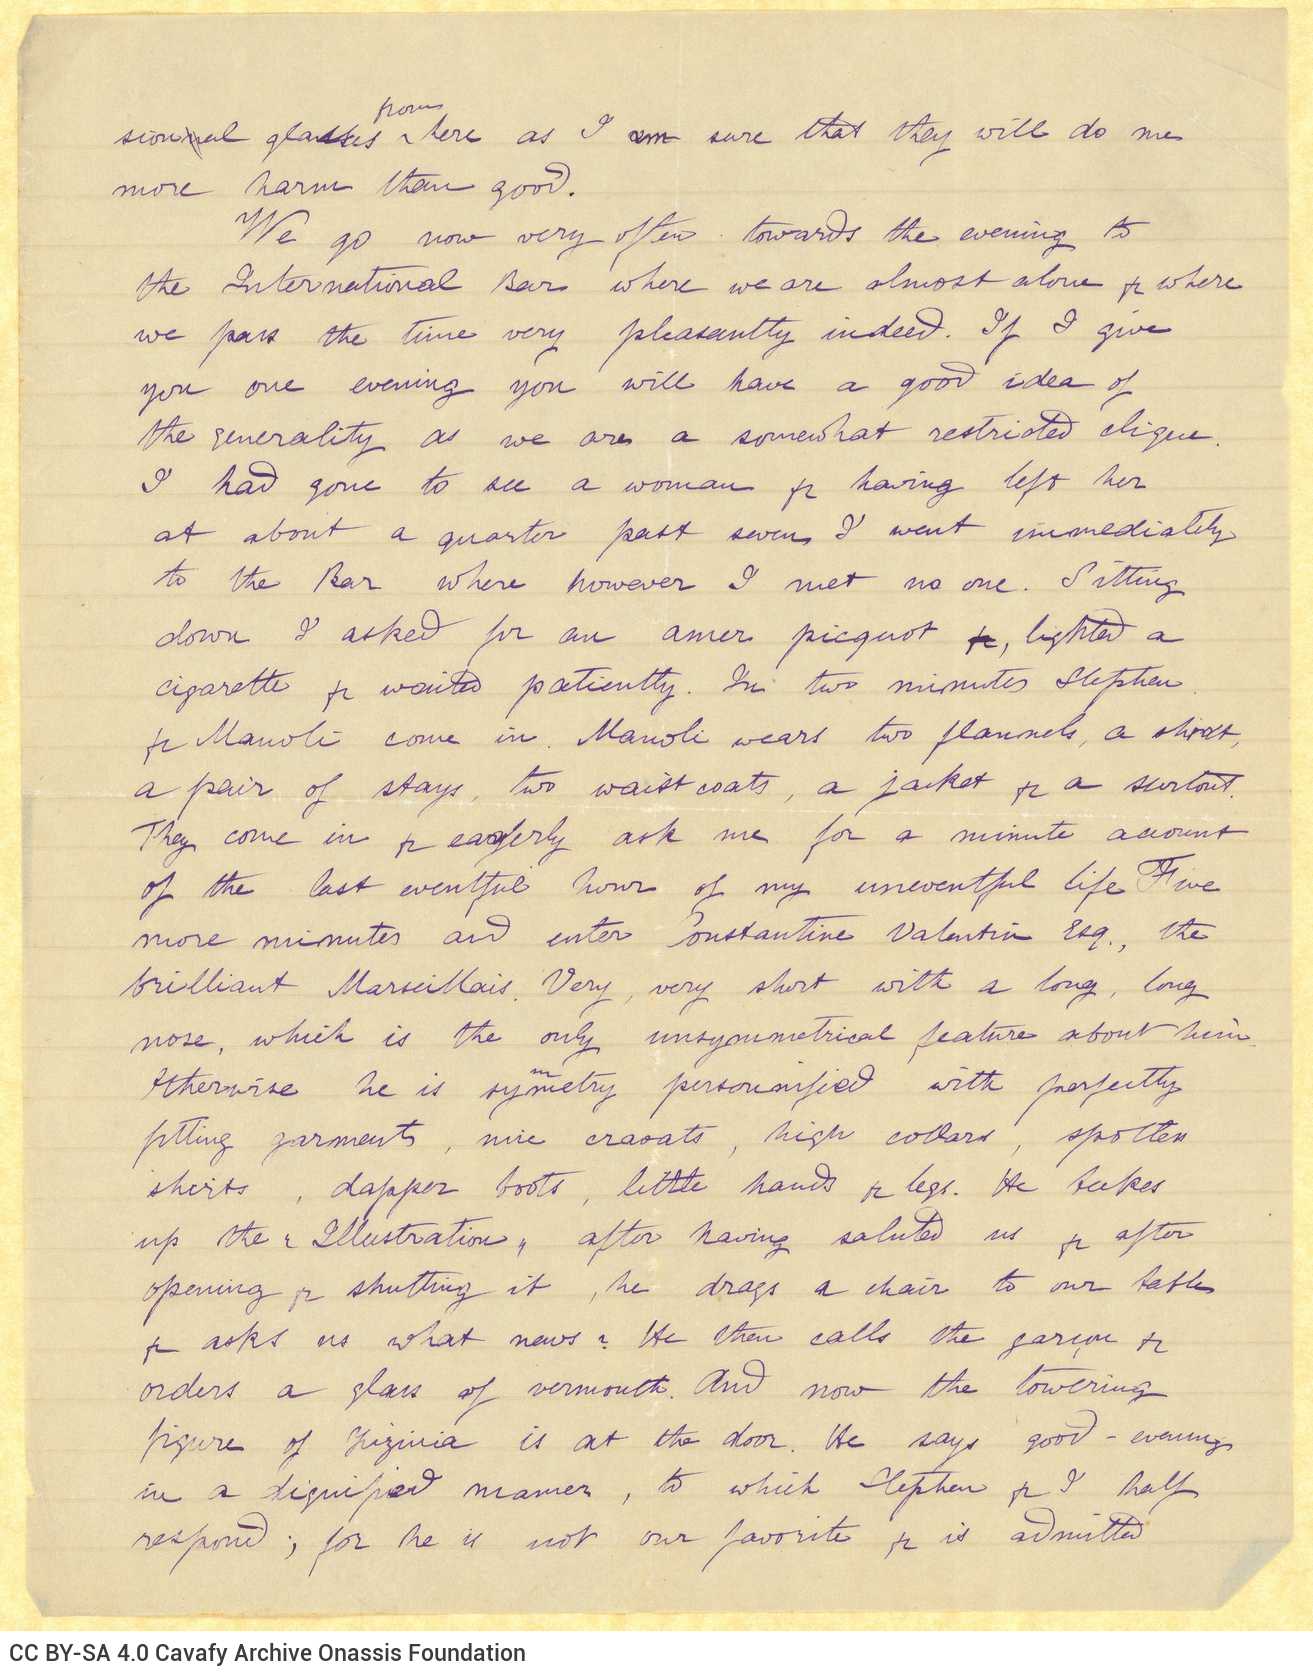 from
sional glasses here as I am sure that they will do me
more harm than good.
We go now very often towards the evening to
the International Bar where we are almost alone & where
we pass the time very pleasantly indeed. If I give
you one evening you will have a good idea of
the generality as we are a somewhat restricted clique.
I had gone to see a woman & having left her
at about a quarter past seven I went immediately
to the Bar where however I met no one. Sitting
down I asked for an amer picquot &, lighted a
cigarette & waited patiently. In two minutes Stephen
& Manoli come in. Manoli wears two flannels, a shirt,
a pair of stays, two waistcoats, a jacket & a surtout.
They come in & eagerly ask me for a minute account
of the last eventful hour of my uneventful life Five
more minutes and enter Constantine Valentin Esq., the
brilliant Marseillais. Very, very short with a long, long
nose, which is the only unsymmetrical feature about him.
Otherwise he is symmetry personnified with perfectly
fitting garments, nice cravats, high collars, spotless
shirts, dapper boots, little hands & legs. He takes
up the "Illustration" after having saluted us & after
opening & shutting it, he drags a chair to our table
& asks us what news? He then calls the garçon &
orders a glass of vermouth. And now the towering
figure of is at the door. He says good-evening
in a dignified manner, to which Stephen & I half
respond; for he is not our favorite & is admitted
CC BY-SA 4.0 Cavafy Archive Onassis Foundation